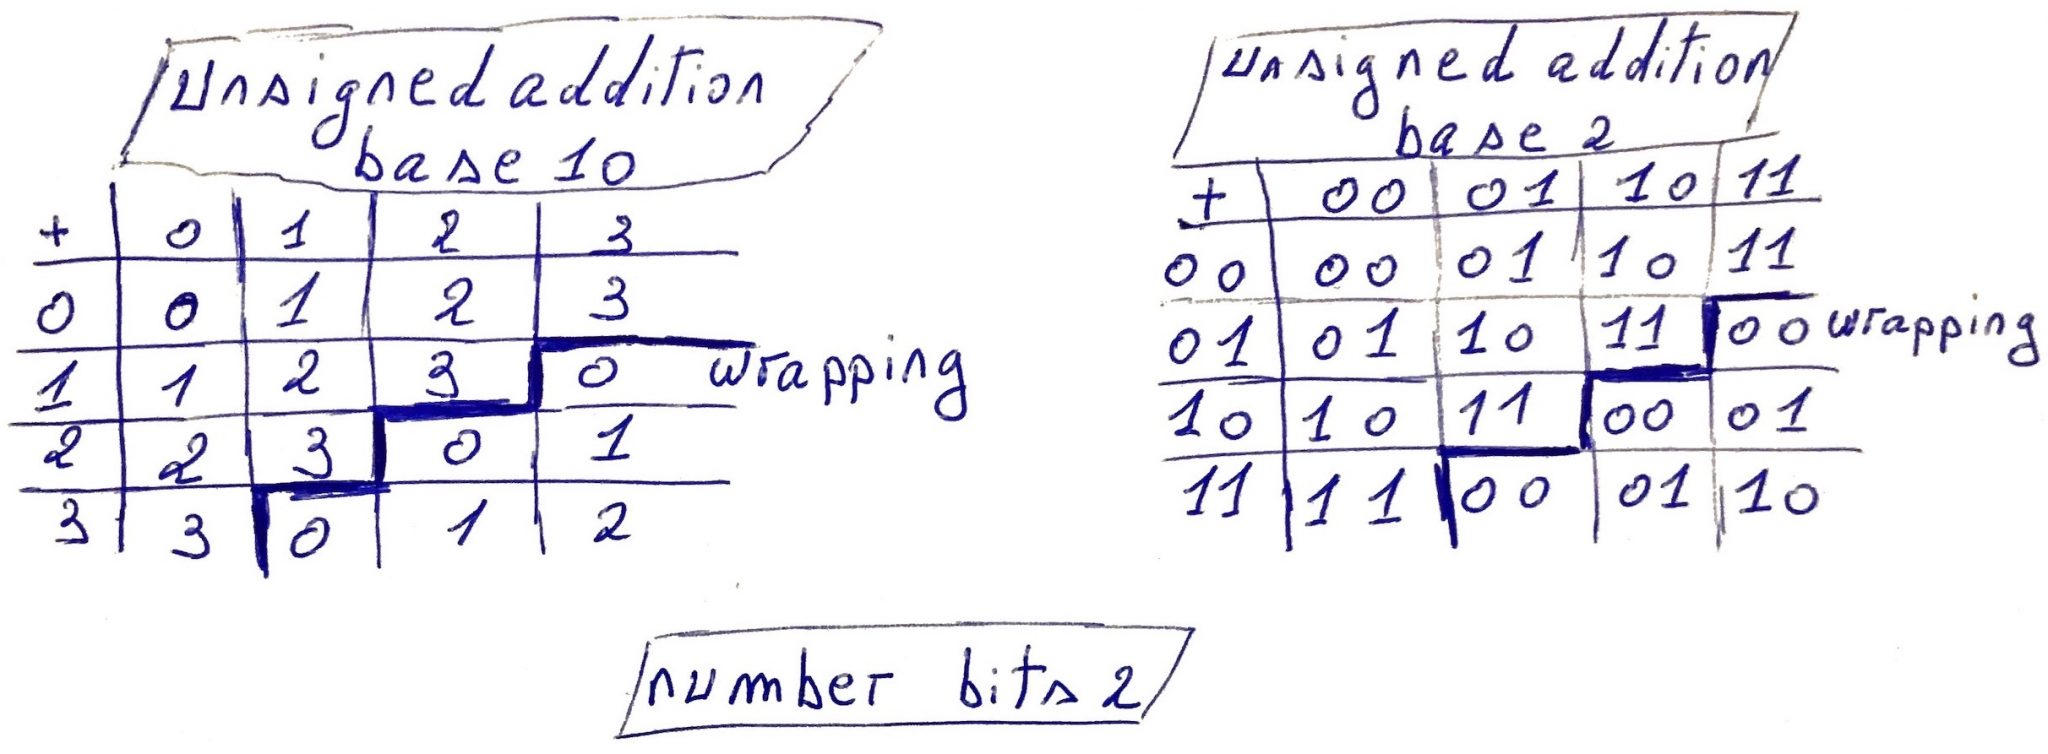 Unsigned addition
base 10
+ 0 1 2 3
0 0 1 2 3
1 1 2 3 0 wrapping
2 2 3 0 1
3 3 0 1 2
Unsigned addition
base 2
+ 00 01 10 11
00 00 01 10 11
01 01 10 11 00 wrapping
10 10 11 00 01
11 11 00 01 10
number bits 2